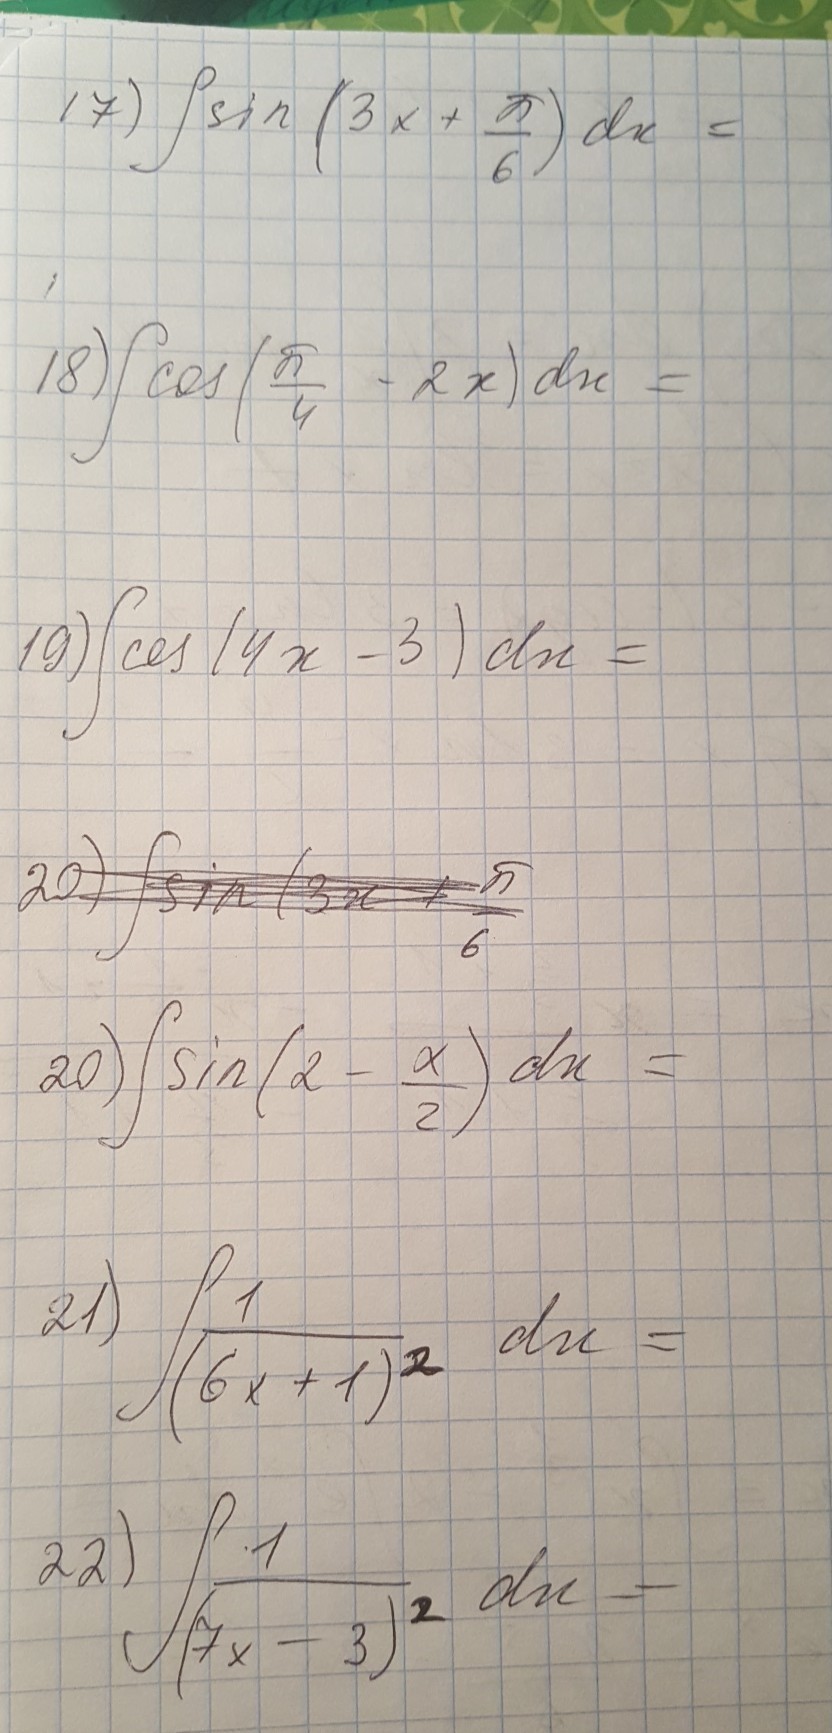 17) ∫ sin (3x + π/6) dx =
18) ∫ cos (π/4 - 2x) dx =
19) ∫ cos (4x - 3) dx =
20) ∫ sin (3x + π/6
20) ∫ sin (2 - x/2) dx =
21) ∫ 1/(6x + 1)² dx =
22) ∫ 1/(7x - 3)² dx =